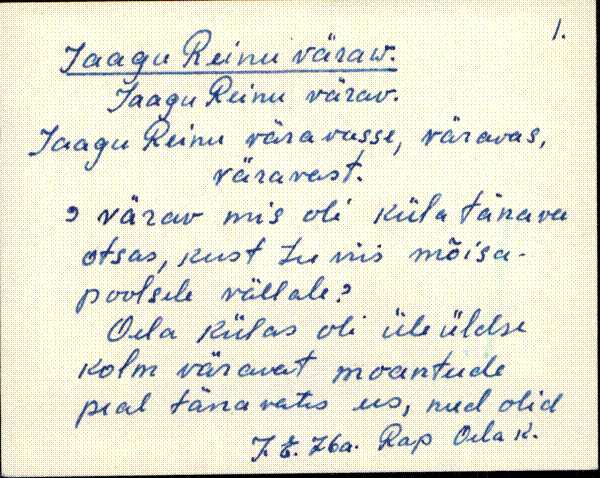 1.
Jaagu Reinu väraw.
Jaagu Reinu värav.
Jaagu Reinu väravasse, väravas,
väravast.
värav mis oli küla tänava
otsas, kust tee viis mõisa-
poolsele vällale?
Oela külas oli üleüldse
kolm väravat moantude
peal tänavates ees, need olid
J. E. 76a. Rap Oela k.